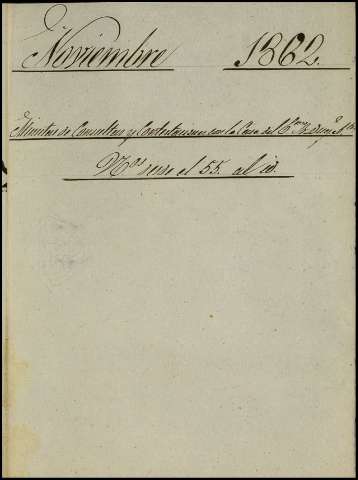 Noviembre 1862.
Minutas de Consultas y Contestaciones con la Casa del
Nos desde el 55. al id.